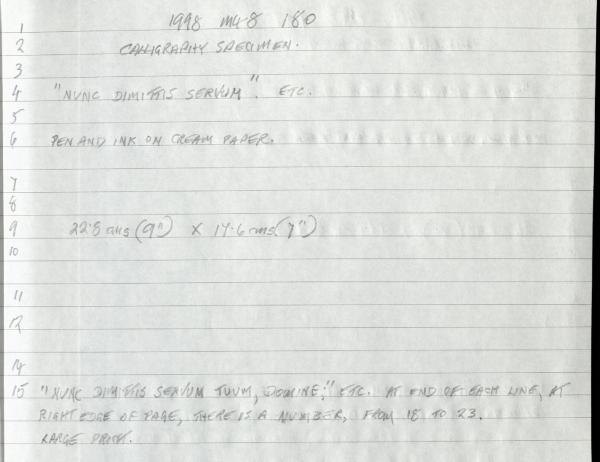 1 1998 M4.8 180
2 CALLIGRAPHY SPECIMEN.
3
4 "NUNC DIMITTIS SERVUM". ETC.
5
6 PEN AND INK ON CREAM PAPER.
7
8
9 22.8 cms (9") x 17.6 cms (7")
10
11
12
14
15 "NUNC DIMITTIS SERVUM TUUM, DOMINE;" ETC. AT END OF EACH LINE, AT
RIGHT EDGE OF PAGE, THERE IS A NUMBER, FROM 18 TO 23.
LARGE PRINT.